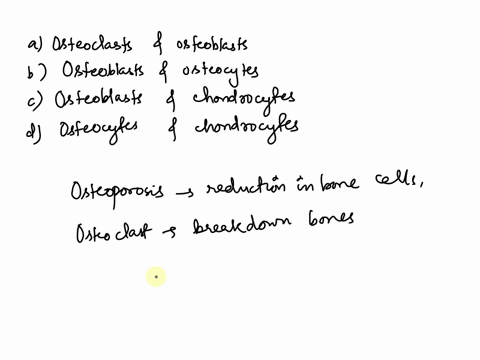 a) Osteoclasts & osteoblasts
b) Osteoblasts & osteocytes
c) Osteoblasts & chondrocytes
d) Osteocytes & chondrocytes
Osteoporosis → reduction in bone cells,
Osteoclast → breakdown bones